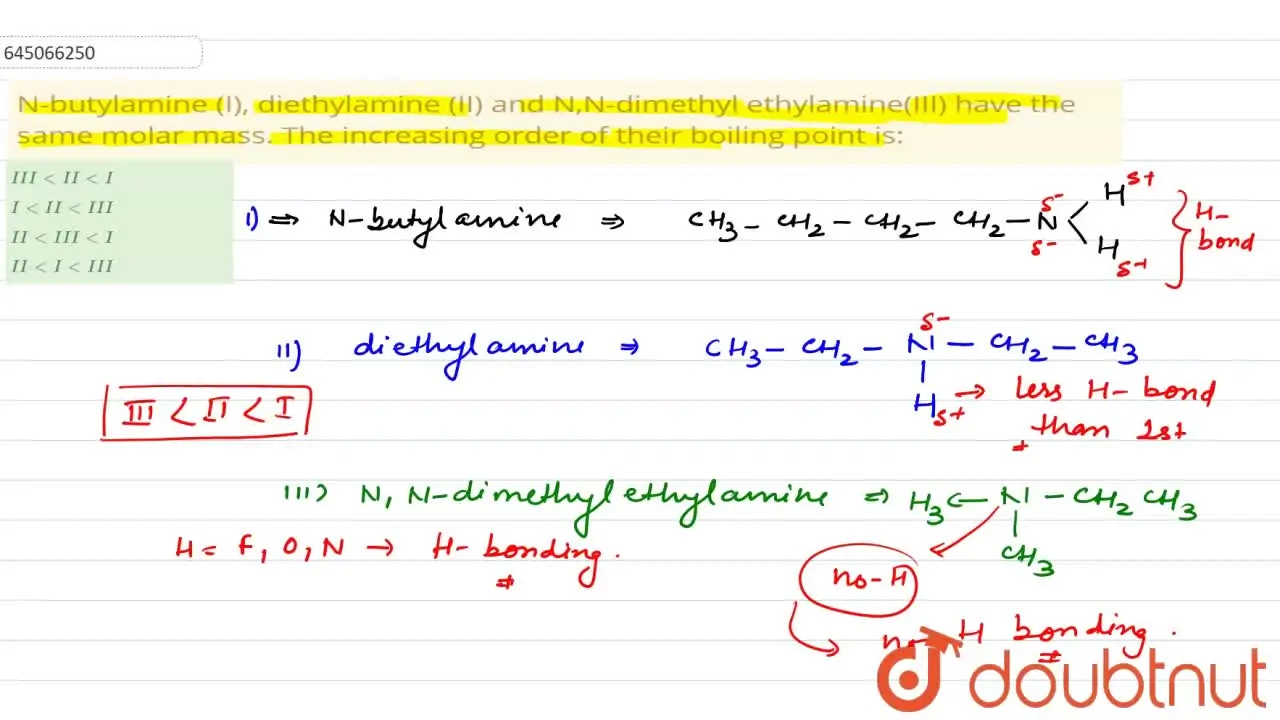 645066250
N-butylamine (I), diethylamine (II) and N,N-dimethyl ethylamine(III) have the
same molar mass. The increasing order of their boiling point is:
III < II < I
I < II < III
II < III < I
II < I < III
I) ⇒ N-butylamine ⇒ CH3 - CH2 - CH2 - CH2 - N
H δ+
δ-
δ-
H
δ+
H-
bond
II) diethylamine ⇒ CH3 - CH2 - N - CH2 - CH3
δ-
H δ+ → less H-bond
than 1st
III < II < I
III) N, N-dimethylethylamine ⇒ H3C - N - CH2 CH3
CH3
H = F, O, N → H-bonding.
no-H
no H bonding.
doubtnut